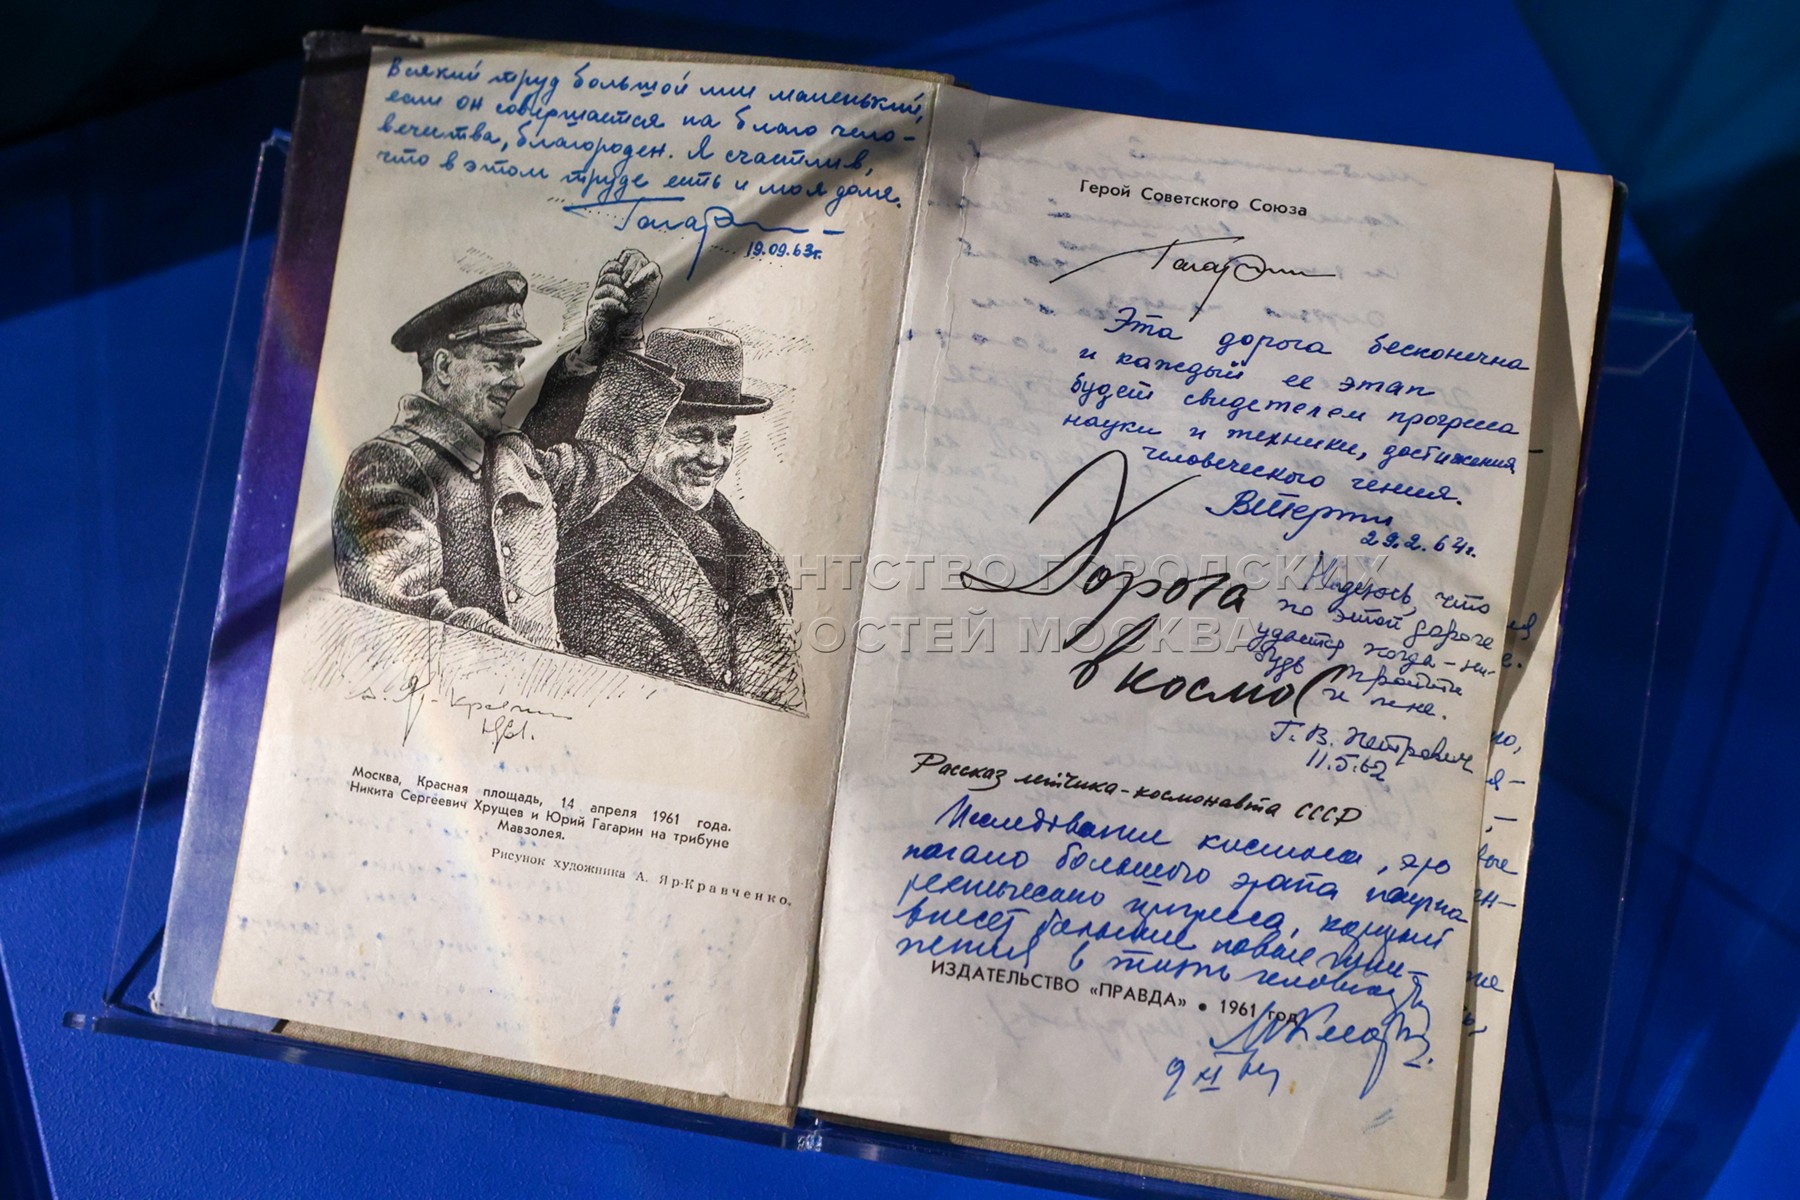 Всякий труд большой или маленький,
если он совершается на благо чело-
вечества, благороден. Я счастлив,
что в этом труде есть и моя доля.
Гагарин
19.09.63г.
1961.
Москва, Красная площадь, 14 апреля 1961 года.
Никита Сергеевич Хрущев и Юрий Гагарин на трибуне
Мавзолея.
Рисунок художника А. Яр-Кравченко.
Герой Советского Союза
Гагарин
Эта дорога бесконечна
и каждый ее этап
будет свидетелем прогресса
науки и техники, достижения
человеческого гения.
29.2.64г.
Дорога
в космос
Надеюсь, что
по этой дороге
удастся когда-ни-
будь пройти
и мне.
Г. В. Петрович
11.5.62
Рассказ лётчика-космонавта СССР
Исследование космоса, это
начало большого этапа научно
технического прогресса, который
внесет большие новые
в жизнь
ИЗДАТЕЛЬСТВО «ПРАВДА» • 1961 год
АГЕНТСТВО ГОРОДСКИХ
НОВОСТЕЙ МОСКВА